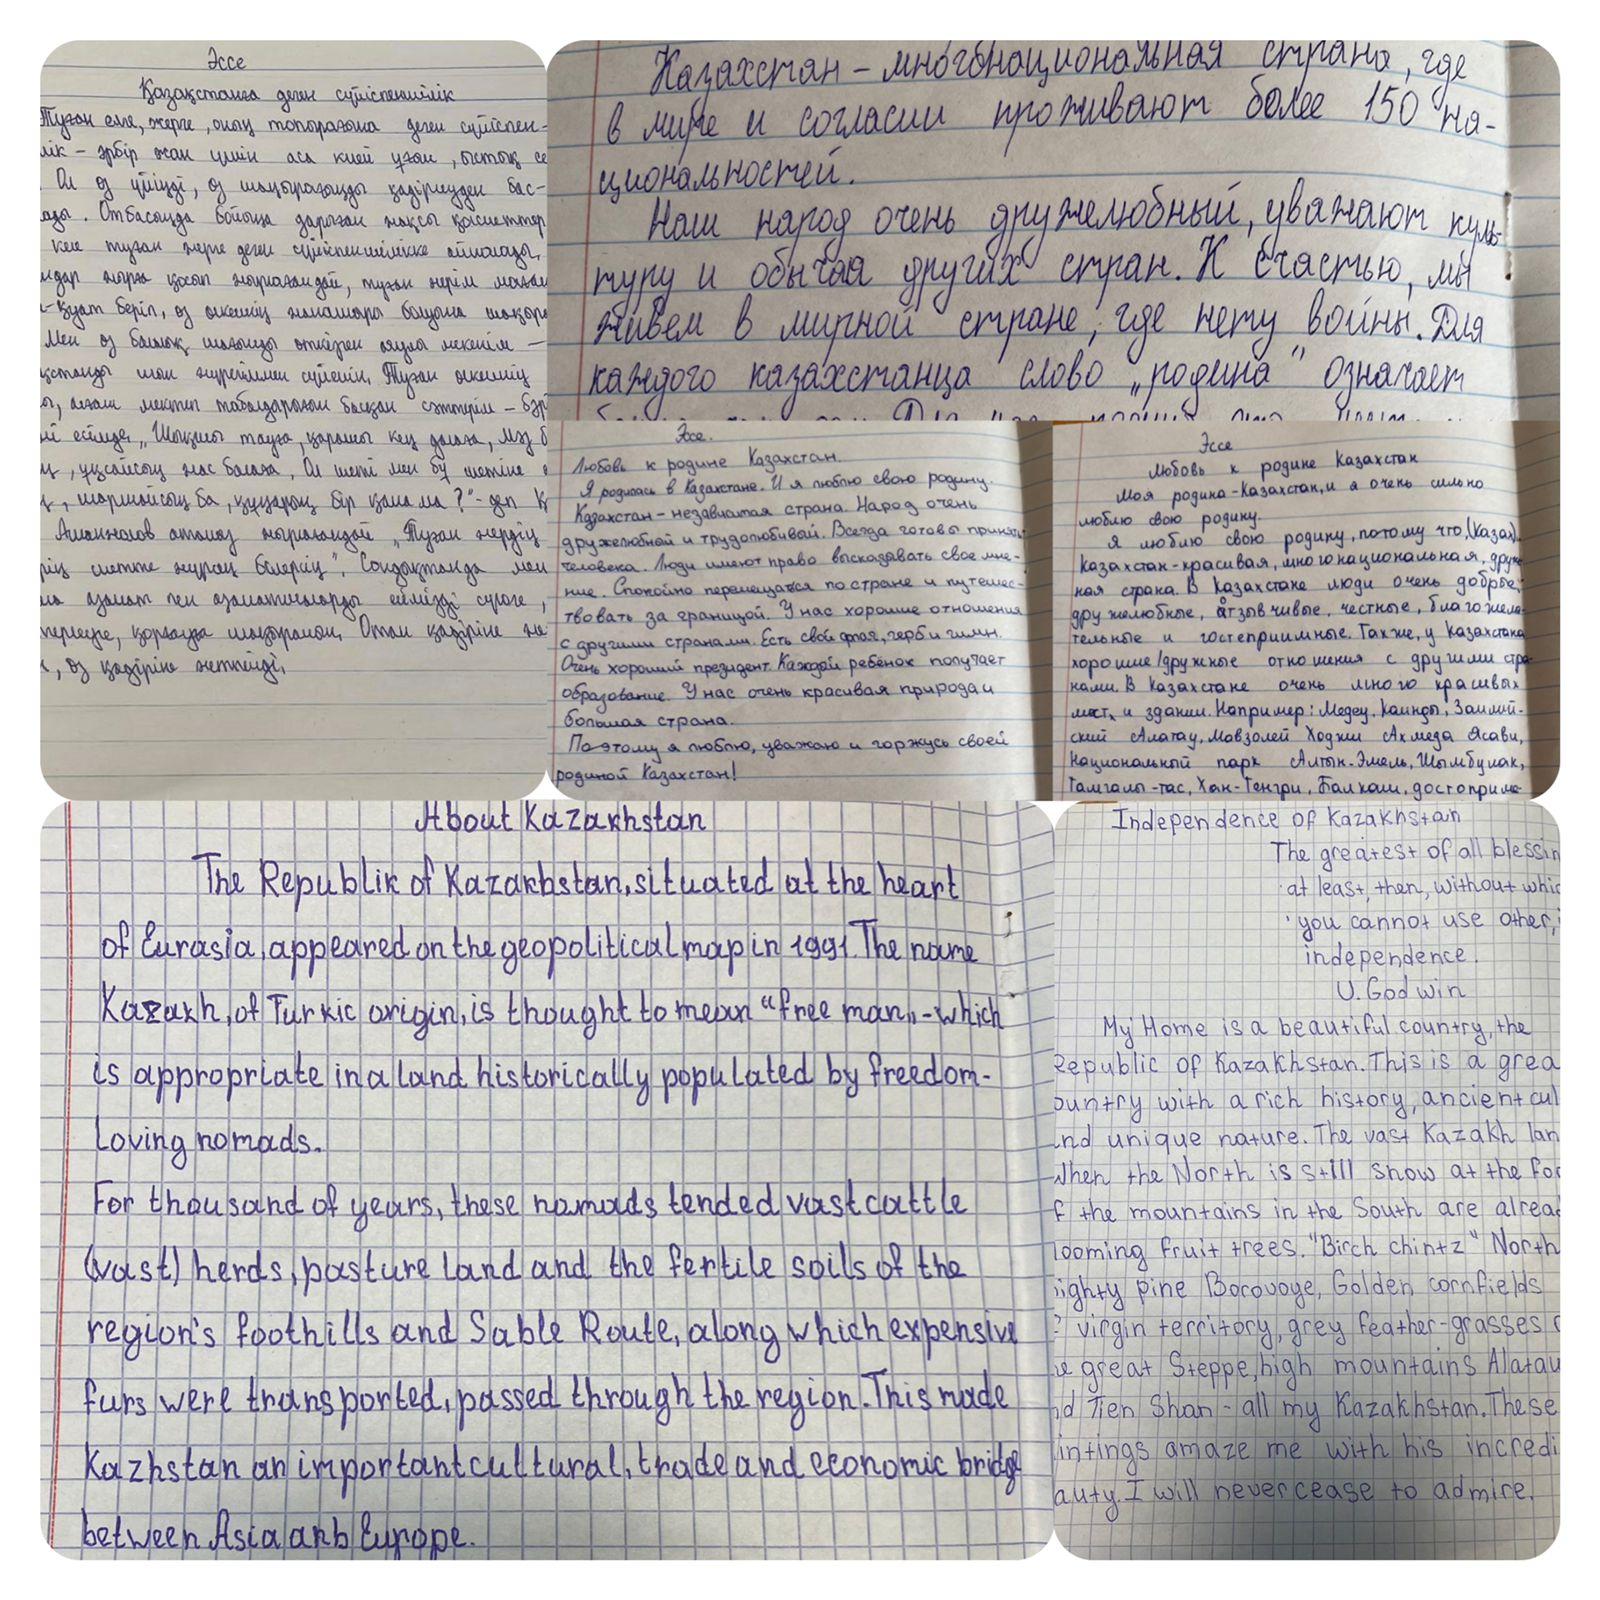 Эссе
Қазақстанға деген сүйіспеншілік
Туған елге, жерге, оның топырағына деген сүйіспен-
лік – әрбір жан үшін аса киелі ұғым, ыстық се
Ол өз үйіңді, өз шаңырағыңды қадірлеуден бас-
ады. Отбасыңда бойыңа дарыған жақсы қасиеттер
келе туған жерге деген сүйіспеншілікке айналады,
жырға қосып жырлағандай, туған жерім маған
-қуат беріп, өз өлкемнің жанашыры болуға шақыра
Мен өз балалық шағымды өткізген аяулы мекенім –
қстанды шын жүрегіммен сүйемін. Туған өлкемнің
ы, алғаш мектеп табалдырығын басқан сәттерім – бәрі
есімде. „Шықшы тауға, қарашы кең далаға, мәз б
ң, ұқсайсың жас балаға. Ол шеті мен бұ шетіне
, шаршайсың ба, құмарың бір қана ма?" – деп Қ
Аманжолов атамыз жырлағандай „Туған жердің
рің шетте жүрсең білерсің". Сондықтанда мен
азамат пен азаматшаларды елімізді сүюге,
қорғауға шақырамын. Отан қадіріне же
, өз қадіріне жетпейді.
Казахстан – многонациональная страна, где
в мире и согласии проживают более 150 на-
циональностей.
Наш народ очень дружелюбный, уважают куль-
туру и обычая других стран. К счастью, мы
живем в мирной стране, где нету войны. Для
каждого казахстанца слово „родина" означает
Эссе.
Любовь к родине Казахстан.
Я родилась в Казахстане. И я люблю свою родину.
Казахстан – независимая страна. Народ очень
дружелюбной и трудолюбивой. Всегда готовы принять
человека. Люди имеют право высказывать свое мне-
ние. Спокойно перемещаться по стране и путешес-
твовать за границой. У нас хорошие отношения
с другими странами. Есть свой флаг, герб и гимн.
Очень хороший президент. Каждой ребёнок получает
образование. У нас очень красивая природа и
большая страна.
Поэтому я люблю, уважаю и горжусь своей
родиной Казахстан!
Эссе
Любовь к родине Казахстан
Моя родина – Казахстан, и я очень сильно
люблю свою родину.
Я люблю свою родину, потому что, (Казах).
Казахстан – красивая, многонациональная, друж
ная страна. В Казахстане люди очень добрые,
дружелюбные, отзывчивые, честные, благожела-
тельные и гостеприимные. Также, у Казахстана
хорошие/дружные отношения с другими стра-
нами. В Казахстане очень много красивых
мест, и здании. Например: Медеу, Каинды, Заилий-
ский Алатау, Мавзолей Ходжи Ахмеда Ясави,
Национальный парк Алтын-Эмель, Шымбулак,
Тамгалы-тас, Хан-Тенгри, Балхаш, достоприме-
About Kazakhstan
The Republik of Kazakhstan, situated at the heart
of Eurasia, appeared on the geopolitical map in 1991. The name
Kazakh, of Turkic origin, is thought to mean "free man„ – which
is appropriate in a land historically populated by freedom-
loving nomads.
For thousand of years, these nomads tended vast cattle
(vast) herds, pasture land and the fertile soils of the
region's foothills and Sable Route, along which expensive
furs were transported, passed through the region. This made
Kazhstan an important cultural, trade and economic bridge
between Asia anb Europe.
Independence of Kazakhstan
The greatest of all blessin
at least, then, without whic
you cannot use other, i
independence.
U. Godwin
My Home is a beautiful country, the
Republic of Kazakhstan. This is a grea
ountry with a rich history, ancient cul
nd unique nature. The vast Kazakh lan
When the North is still snow at the foo
f the mountains in the South are alread
looming fruit trees. "Birch chintz" North
ighty pine Borovoye, Golden cornfields
f virgin territory, grey feather-grasses o
e great Steppe, high mountains Alatau
nd Tien Shan – all my Kazakhstan. These
intings amaze me with his incredi
auty. I will never cease to admire.